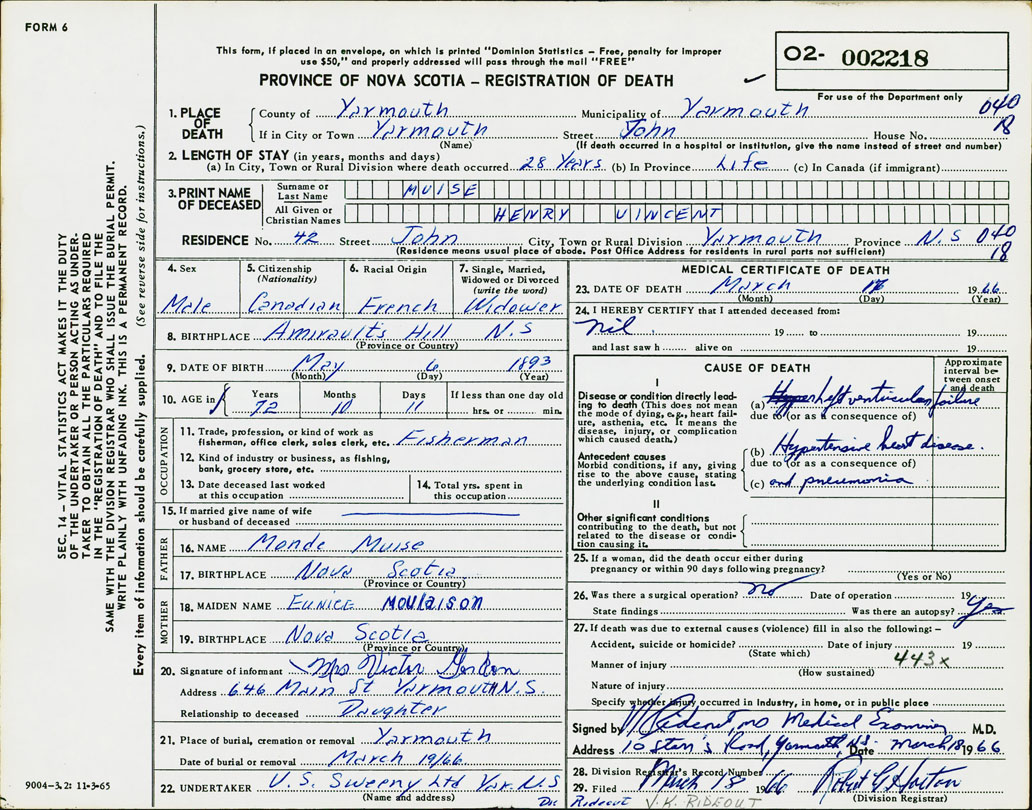 FORM 6
This form, if placed in an envelope, on which is printed "Dominion Statistics – Free, penalty for improper
use $50," and properly addressed will pass through the mail "FREE"
PROVINCE OF NOVA SCOTIA – REGISTRATION OF DEATH
02- 002218
For use of the Department only
1. PLACE OF DEATH
County of Yarmouth Municipality of Yarmouth 040
If in City or Town Yarmouth Street John House No. 18
(Name) (If death occurred in a hospital or institution, give the name instead of street and number)
2. LENGTH OF STAY (in years, months and days)
(a) In City, Town or Rural Division where death occurred 28 Years (b) In Province Life (c) In Canada (if immigrant)
3. PRINT NAME OF DECEASED
Surname or Last Name MUISE
All Given or Christian Names HENRY VINCENT
RESIDENCE No. 42 Street John City, Town or Rural Division Yarmouth Province N.S 040
(Residence means usual place of abode. Post Office Address for residents in rural parts not sufficient) 18
4. Sex
Male
5. Citizenship (Nationality)
Canadian
6. Racial Origin
French
7. Single, Married, Widowed or Divorced (write the word)
Widower
8. BIRTHPLACE Amiraults Hill N.S
(Province or Country)
9. DATE OF BIRTH May 6 1893
(Month) (Day) (Year)
10. AGE in
Years Months Days If less than one day old
72 10 11 hrs. or min.
OCCUPATION
11. Trade, profession, or kind of work as
fisherman, office clerk, sales clerk, etc. Fisherman
12. Kind of industry or business, as fishing,
bank, grocery store, etc.
13. Date deceased last worked
at this occupation
14. Total yrs. spent in
this occupation
15. If married give name of wife
or husband of deceased
FATHER
16. NAME Monde Muise
17. BIRTHPLACE Nova Scotia
(Province or Country)
MOTHER
18. MAIDEN NAME EUNICE MOULAISON
19. BIRTHPLACE Nova Scotia
(Province or Country)
20. Signature of informant Mrs Victor Gordon
Address 646 Main St Yarmouth N.S.
Relationship to deceased Daughter
21. Place of burial, cremation or removal Yarmouth
Date of burial or removal March 19/66
22. UNDERTAKER V.S. Sweeny Ltd Yar. N.S
(Name and address)
MEDICAL CERTIFICATE OF DEATH
23. DATE OF DEATH March 1966
(Month) (Day) (Year)
24. I HEREBY CERTIFY that I attended deceased from:
nil 19 to 19
and last saw h alive on 19
CAUSE OF DEATH
Approximate interval between onset and death
I
Disease or condition directly leading to death (This does not mean
the mode of dying, e.g., heart failure, asthenia, etc. It means the
disease, injury, or complication
which caused death.)
(a) left ventricular failure
due to (or as a consequence of)
Antecedent causes
Morbid conditions, if any, giving
rise to the above cause, stating
the underlying condition last.
(b) Hypertensive heart disease.
due to (or as a consequence of)
(c) and pneumonia
II
Other significant conditions
contributing to the death, but not
related to the disease or condition causing it.
25. If a woman, did the death occur either during
pregnancy or within 90 days following pregnancy?
(Yes or No)
26. Was there a surgical operation? no Date of operation 19
State findings Was there an autopsy? Yes
27. If death was due to external causes (violence) fill in also the following: –
Accident, suicide or homicide? Date of injury 19
(State which) 443x
Manner of injury
(How sustained)
Nature of injury
Specify whether injury occurred in industry, in home, or in public place
Signed by V K Rideout, MD Medical Examiner M.D.
Address Road, Yarmouth, N.S. Date March 18 1966
28. Division Registrar's Record Number
29. Filed March 18 1966 Robert G Horton
(Division Registrar)
Dr. Rideout V.K. RIDEOUT
9004–3.2: 11-3-65
SEC. 14 – VITAL STATISTICS ACT MAKES IT THE DUTY
OF THE UNDERTAKER OR PERSON ACTING AS UNDER-
TAKER TO OBTAIN ALL THE PARTICULARS REQUIRED
IN THE "REGISTRATION OF DEATH" AND TO FILE THE
SAME WITH THE DIVISION REGISTRAR WHO SHALL ISSUE THE BURIAL PERMIT.
WRITE PLAINLY WITH UNFADING INK. THIS IS A PERMANENT RECORD.
Every item of information should be carefully supplied. (See reverse side for instructions.)